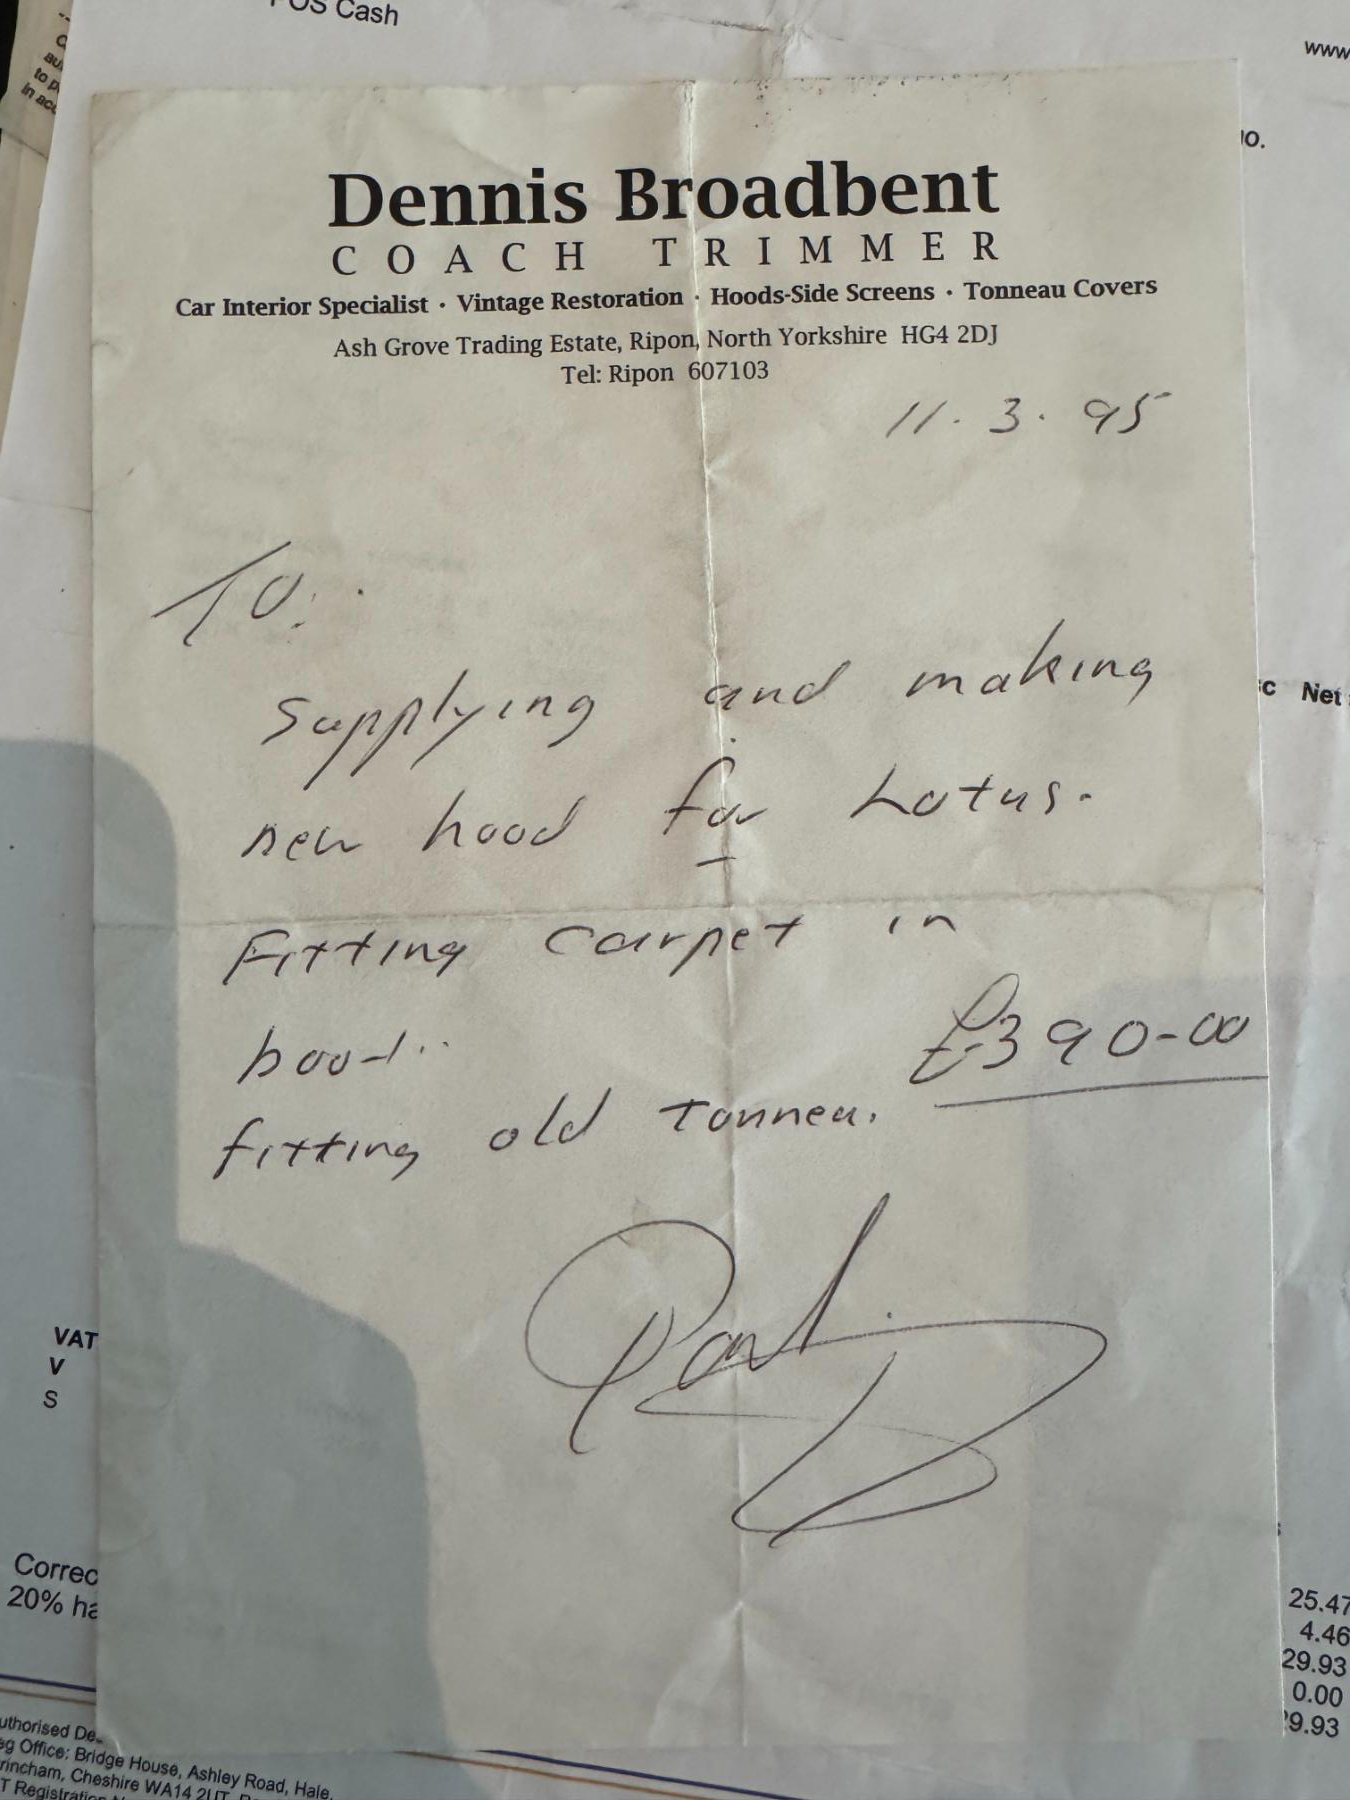 POS Cash
www
to p
in acc
Dennis Broadbent
COACH TRIMMER
Car Interior Specialist · Vintage Restoration · Hoods-Side Screens · Tonneau Covers
Ash Grove Trading Estate, Ripon, North Yorkshire HG4 2DJ
Tel: Ripon 607103
11.3.95
To:
Supplying and making
new hood for Lotus.
Fitting carpet in
boot..
£390-00
fitting old Tonneu.
Paid
c Net
VAT
V
S
Correc
20% ha
25.47
4.46
29.93
0.00
29.93
uthorised De
eg Office: Bridge House, Ashley Road, Hale,
rincham, Cheshire WA14 2UT
T Registration